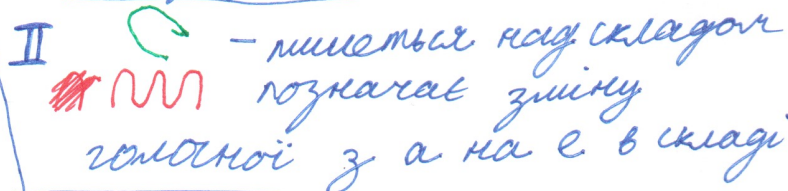 II – пишеться над складом
позначає зміну
голосної з а на е в складі